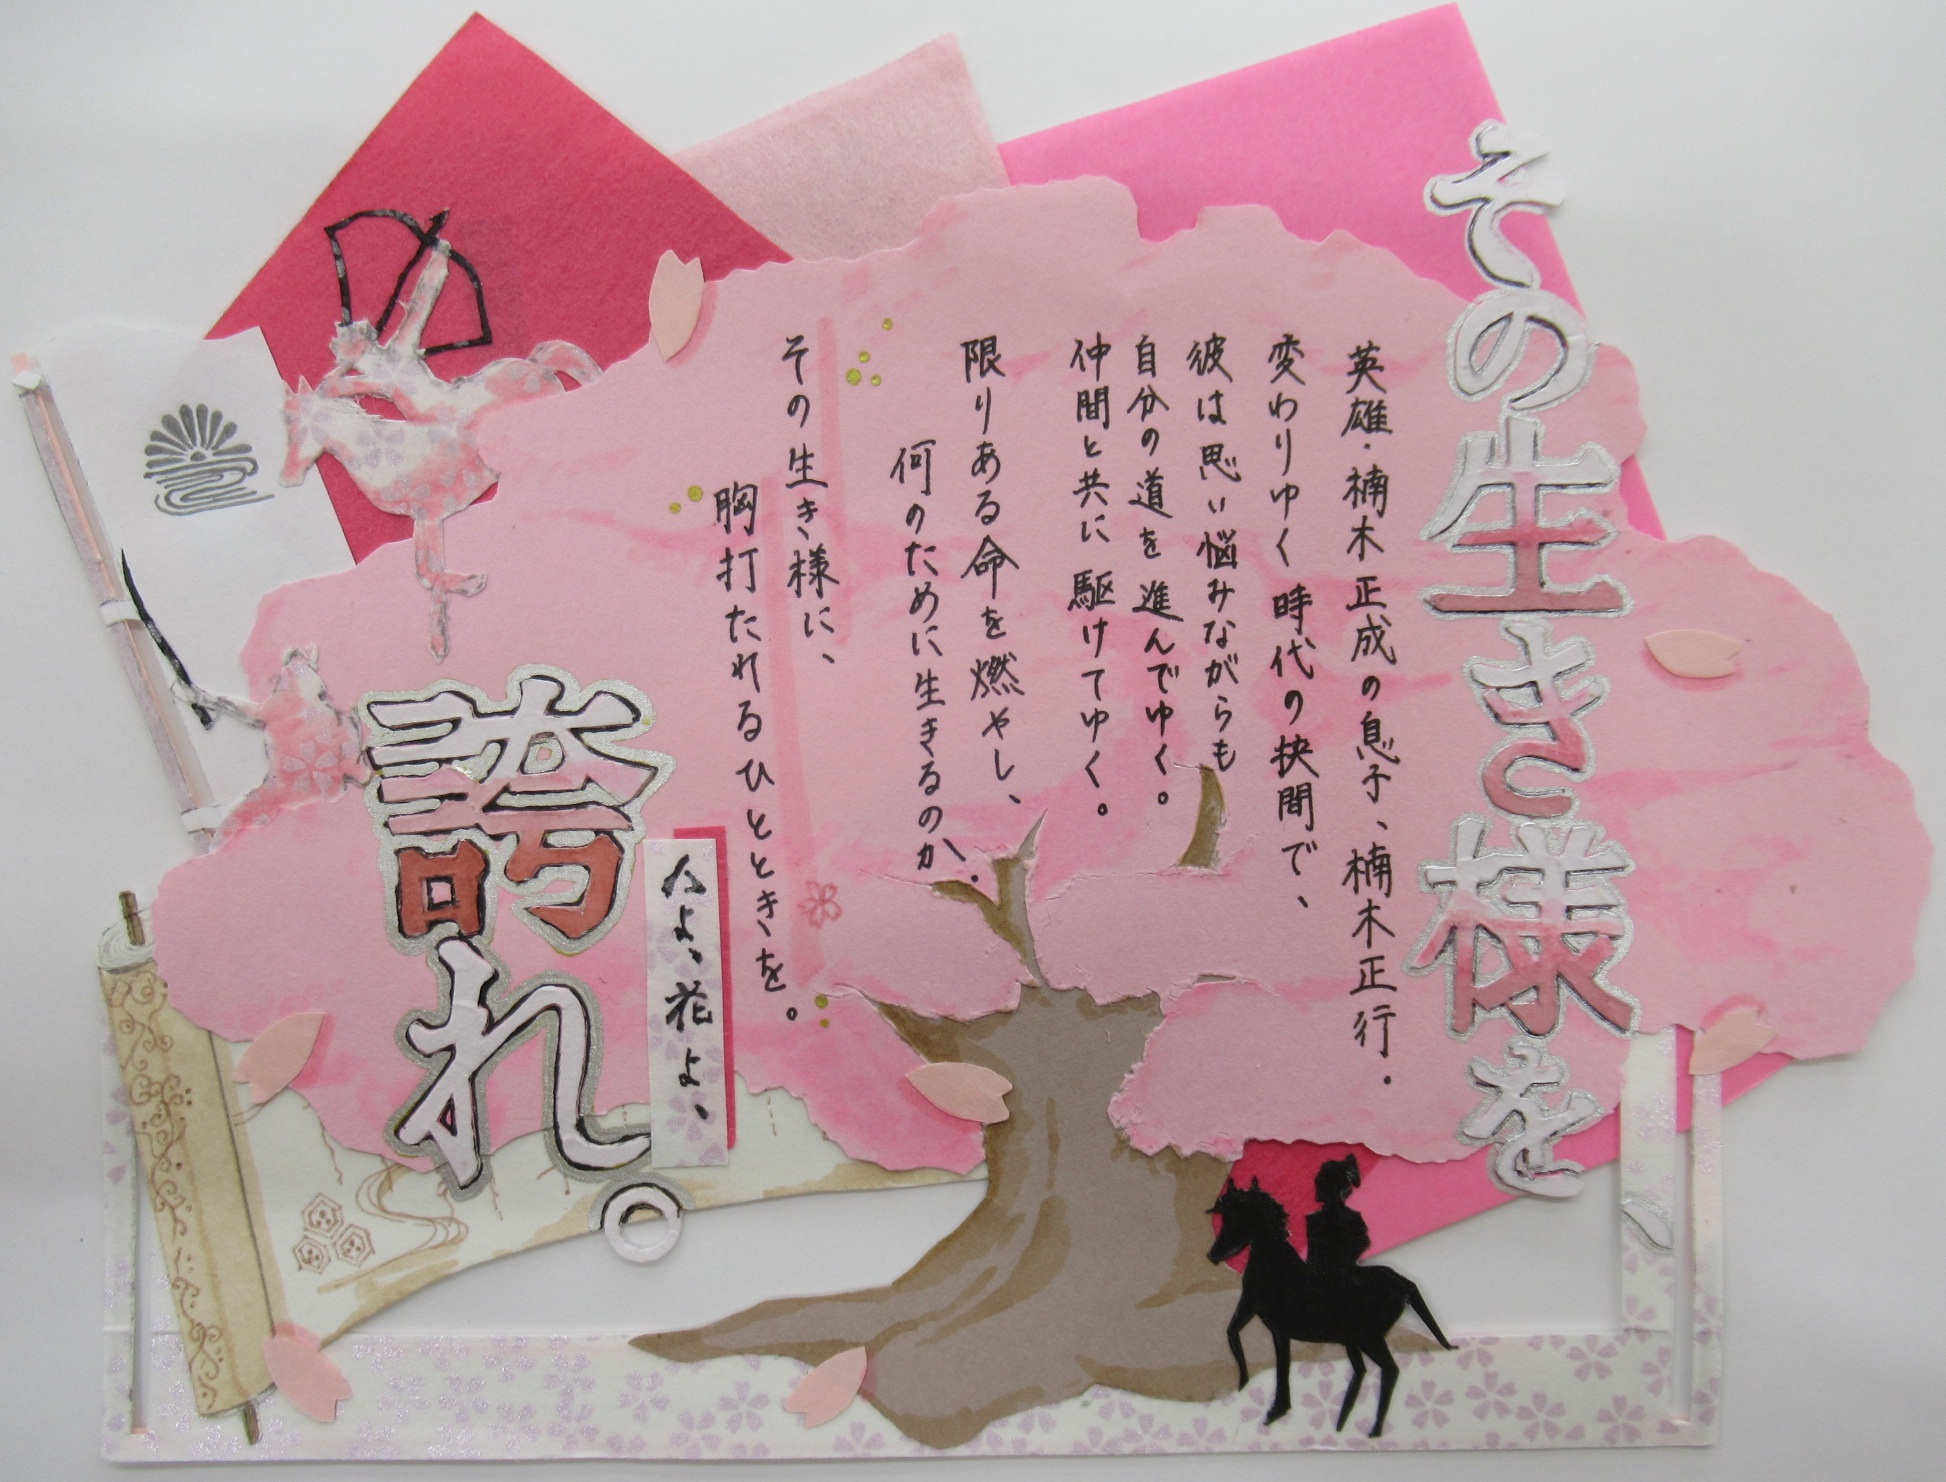 その生き様を、
英雄・楠木正成の息子、楠木正行。
変わりゆく時代の狭間で、
彼は思い悩みながらも
自分の道を進んでゆく。
仲間と共に駆けてゆく。
限りある命を燃やし、
何のために生きるのか。
その生き様に、
胸打たれるひとときを。
人よ、花よ、
誇れ。